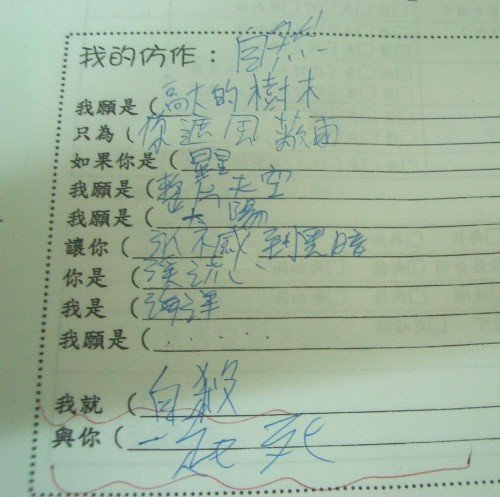 我的仿作：自然
我願是（高大的樹木
只為（你遮風蔽雨
如果你是（星星
我願是（整片天空
我願是（太陽
讓你（永不感到黑暗
你是（溪流
我是（海洋
我願是（．．．．．
我就（自殺
與你（一起死